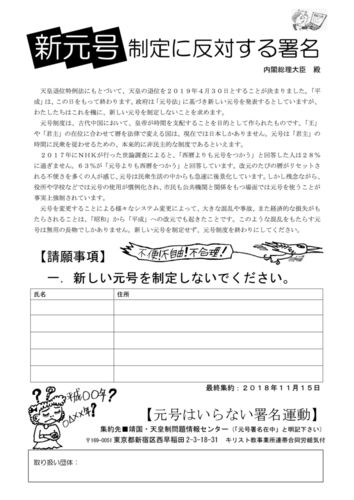 新元号 制定に反対する署名
内閣総理大臣 殿
天皇退位特例法にもとづいて、天皇の退位を２０１９年４月３０日とすることが決まりました。「平
成」は、この日をもって終わります。政府は「元号法」に基づき新しい元号を発表するとしていますが、
わたしたちはこれを機に、新しい元号を制定しないことを求めます。
元号制度は、古代中国において、皇帝が時間を支配することを目的として作られたものです。「王」
や「君主」の在位に合わせて暦を法律で変える国は、現在では日本しかありません。元号は「君主」の
時間に民衆を従わせるための、本来的に非民主的な制度であるといえます。
２０１７年にＮＨＫが行った世論調査によると、「西暦よりも元号をつかう」と回答した人は２８％
に過ぎません。６３％が「元号よりも西暦をつかう」と回答しています。改元のたびの暦がリセットさ
れる不便さを多くの人が感じ、元号は民衆生活の中からも急速に後景化しています。しかし残念ながら、
役所や学校などでは元号の使用が慣例化され、市民も公共機関と関係をもつ場面では元号を使うことが
事実上強制されています。
元号を変更することによる様々なシステム変更によって、大きな混乱や事故、また経済的な損失がも
たらされることは、「昭和」から「平成」への改元でも起きたことです。このような混乱をもたらす元
号は無用の長物でしかありません。新しい元号を制定せず、元号制度を終わりにしてください。
【請願事項】
不便!不自由!不合理!
一．新しい元号を制定しないでください。
氏名 住所
最終集約：２０１８年１１月１５日
平成〇〇年?
〇△××年?
【元号はいらない署名運動】
集約先■靖国・天皇制問題情報センター（「元号署名在中」と明記下さい）
〒169-0051 東京都新宿区西早稲田 2-3-18-31 キリスト教事業所連帯合同労組気付
取り扱い団体：